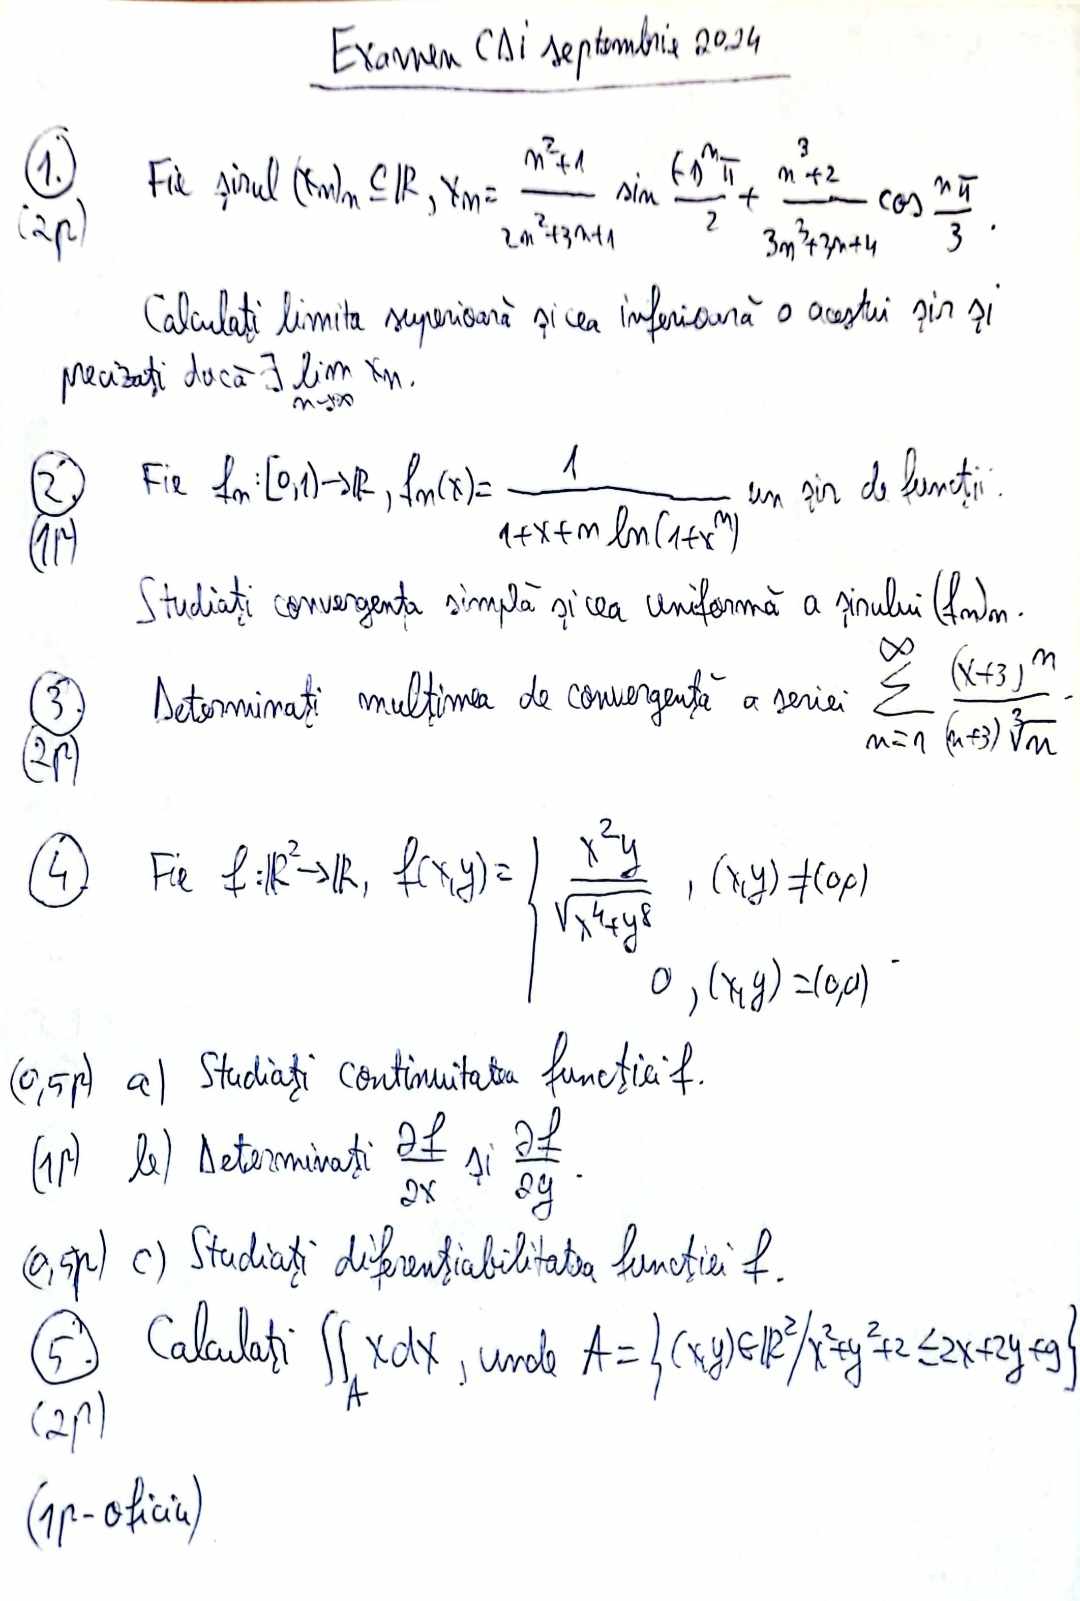 Examen CDI septembrie 2024
1. Fie șirul (xn)n ⊆ ℝ, xn = (n²+1)/(2n²+3n+1) sin ((-1)ⁿπ)/2 + (n³+2)/(3n³+3n+4) cos (nπ)/3.
(2p)
Calculați limita superioară și cea inferioară a acestui șir și
precizați dacă ∃ lim n→∞ xn.
2. Fie fn:[0,1)→ℝ, fn(x) = 1/(1+x+n ln(1+xⁿ)) un șir de funcții.
(1p)
Studiați convergența simplă și cea uniformă a șirului (fn)n.
3. Determinați mulțimea de convergență a seriei ∑ n=1 ∞ (x+3)ⁿ/((n+3) ∛n).
(2p)
4. Fie f:ℝ²→ℝ, f(x,y) = { x²y/√(x⁴+y⁸), (x,y)≠(0,0)
0, (x,y)=(0,0).
(0,5p) a) Studiați continuitatea funcției f.
(1p) b) Determinați ∂f/∂x și ∂f/∂y.
(0,5p) c) Studiați diferențiabilitatea funcției f.
5. Calculați ∬A xdx, unde A = {(x,y)∈ℝ²/x²+y²+2 ≤ 2x+2y+9}
(2p)
(1p-oficiu)